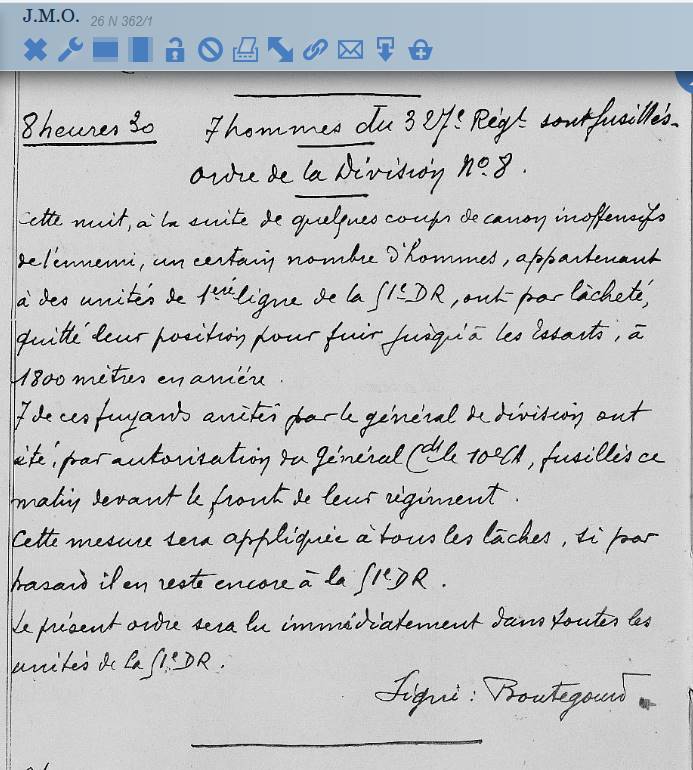 J.M.O. 26 N 362/1
8 heures 30 7 hommes du 327e Régt sont fusillés.
Ordre de la Division No 8.
Cette nuit, à la suite de quelques coups de canon inoffensifs
de l'ennemi, un certain nombre d'hommes, appartenant
à des unités de 1ère ligne de la 51e DR, ont par lâcheté,
quitté leur position pour fuir jusqu'à les Essarts, à
1800 mètres en arrière.
7 de ces fuyards arrêtés par le général de division ont
été, par autorisation du Général Cdt le 10e CA, fusillés ce
matin devant le front de leur régiment.
Cette mesure sera appliquée à tous les lâches, si par
hasard il en reste encore à la 51e DR.
Le présent ordre sera lu immédiatement dans toutes les
unités de la 51e DR.
Signé : Boutegourd